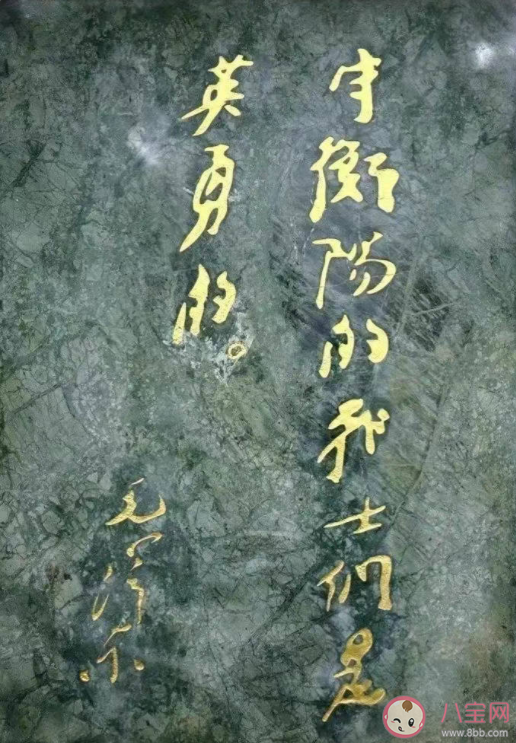 守衡陽的战士們是
英勇的。
毛泽东
八宝网
www.8bb.com